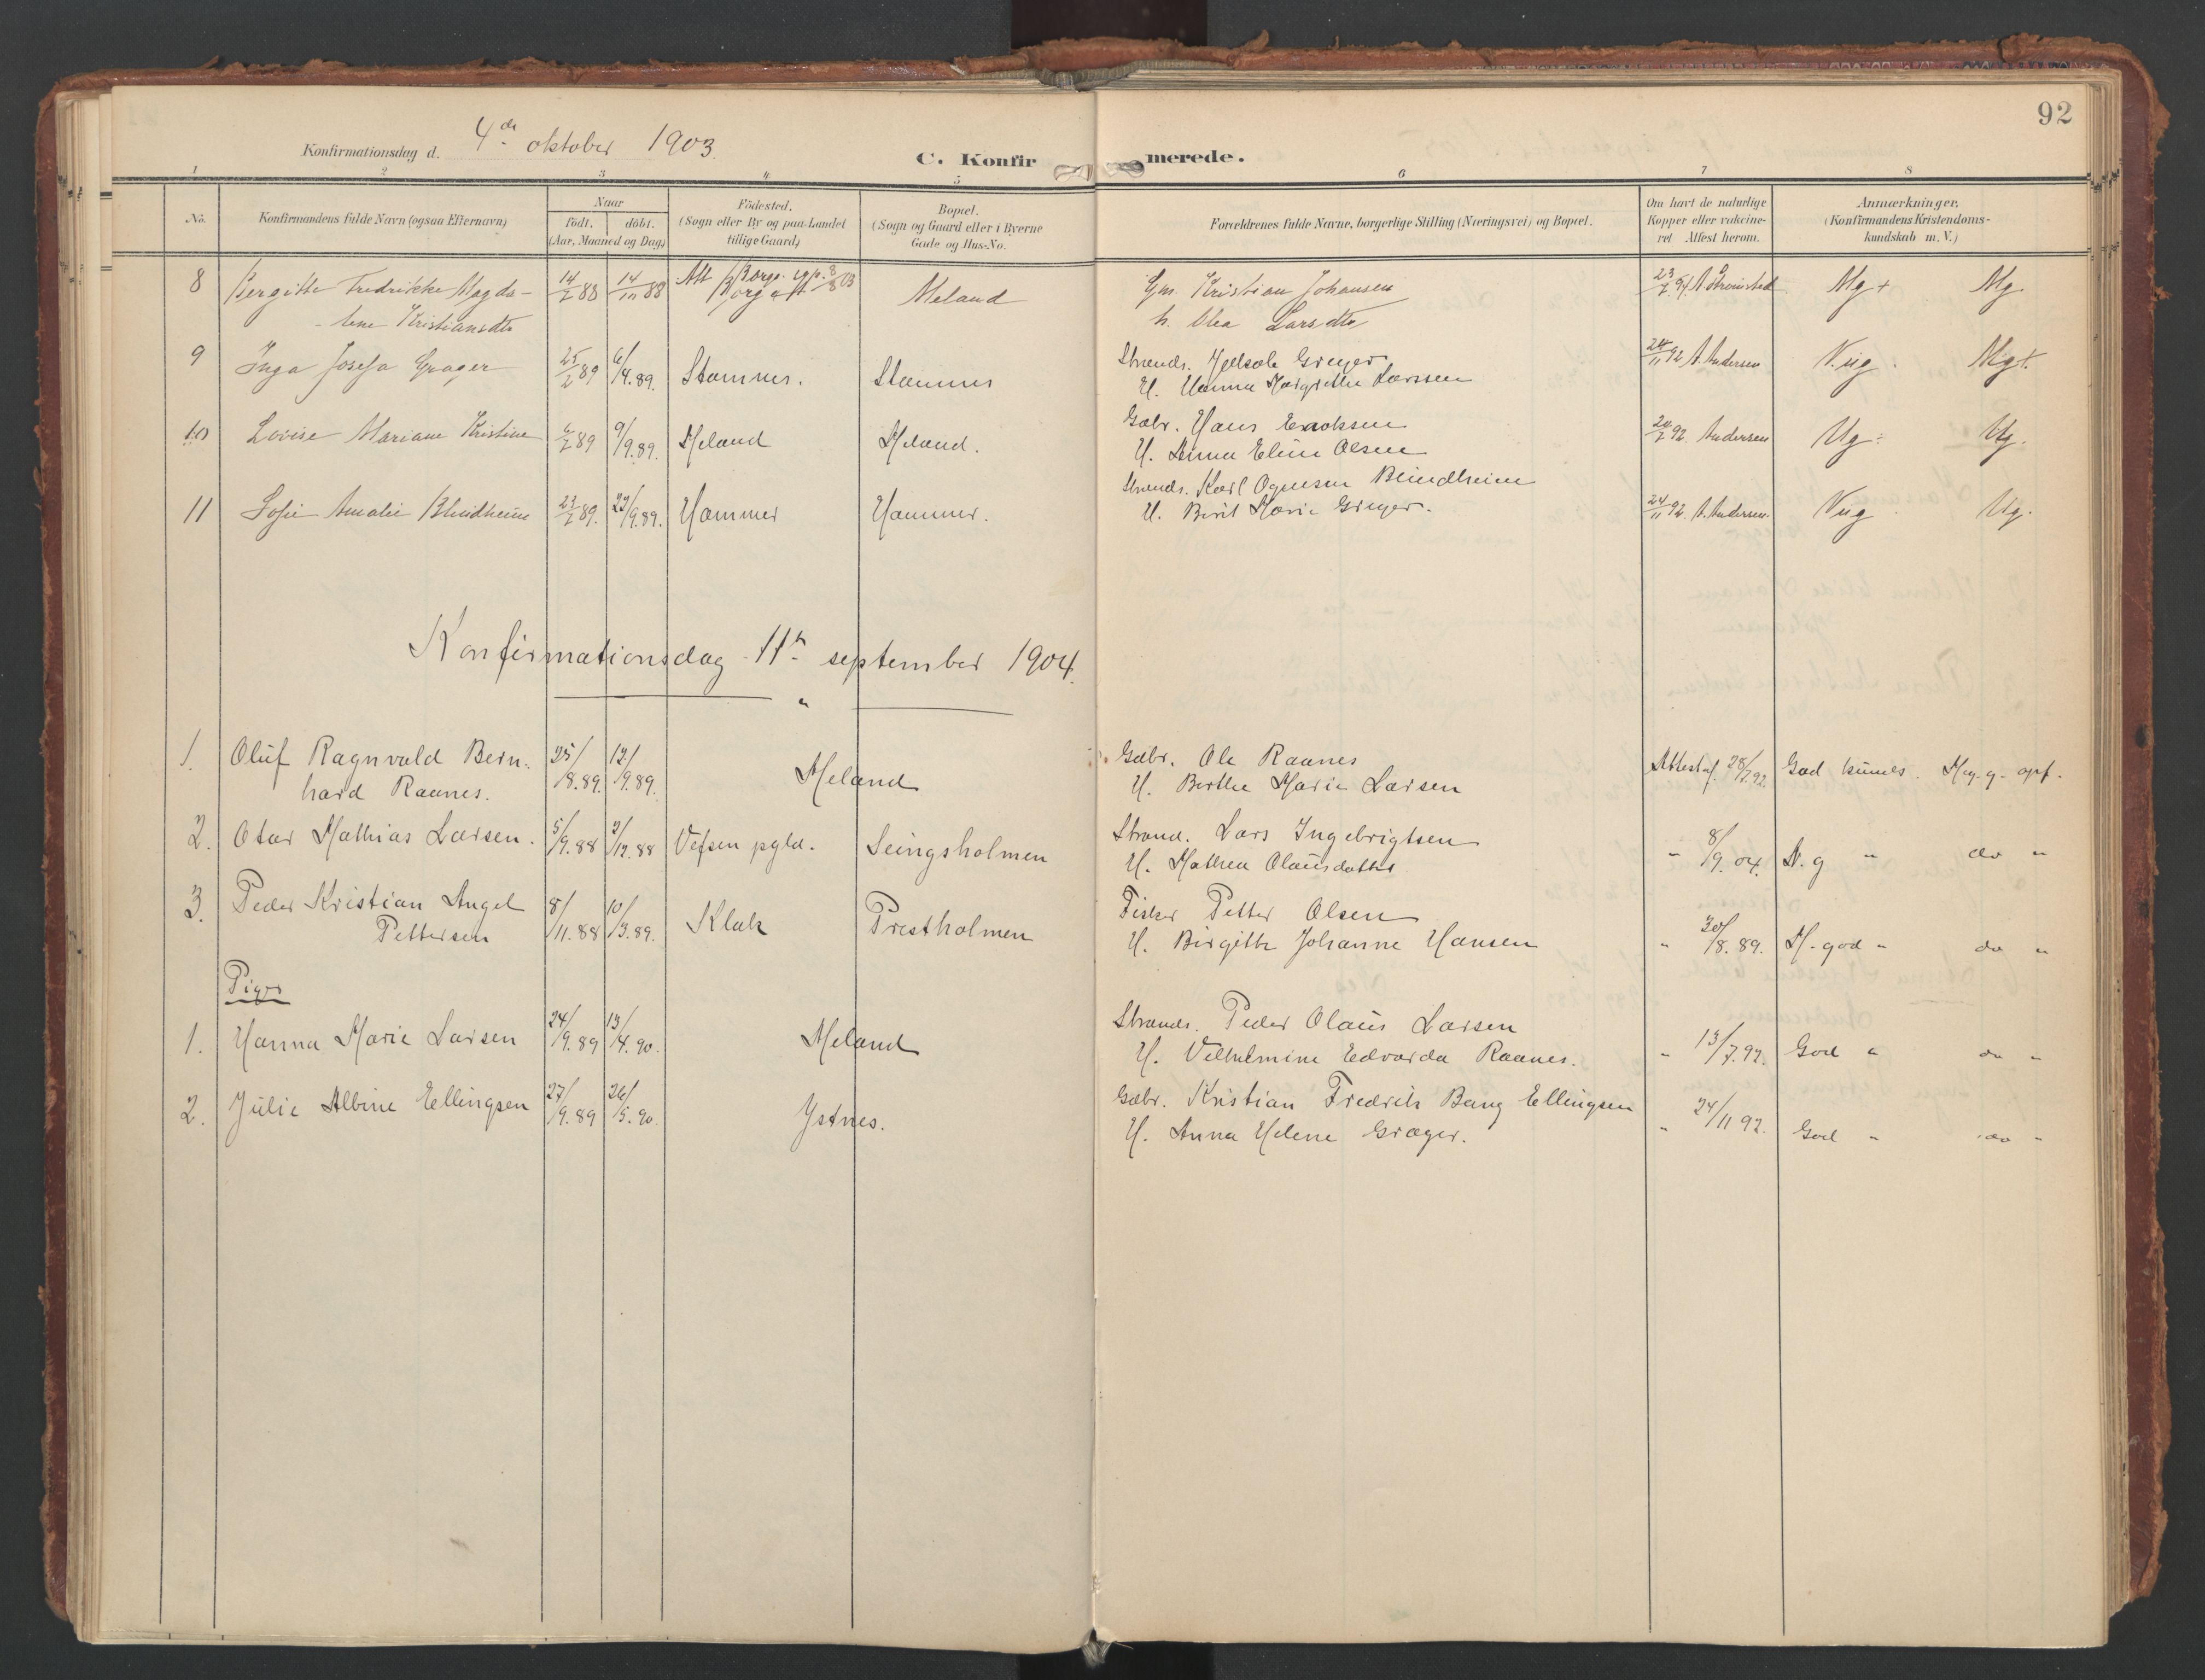 92
Konfirmationsdag d. 4de oktober 1903.
C. Konfirmerede.
1 2 3 4 5 6 7 8
No. Konfirmandens fulde Navn (ogsaa Efternavn) Naar födt. döbt. (Aar, Maaned og Dag) Födested. (Sogn eller By og paa Landet tillige Gaard) Bopæl. (Sogn og Gaard eller i Byerne Gade og Hus-No. Forældrenes fulde Navne, borgerlige Stilling (Næringsvei) og Bopæl. Om havt de naturlige Kopper eller vakcineret Atfest herom. Anmærkninger. (Konfirmandens Kristendomskundskab m. V.)
8 Bergitte Fredrikke Magda- 14/2 88 14/10 88 Att Meland Gm. Kristian Johansen Mg+ Mg.
lene Kristiansdtr h. Olea Larsdtr
9 Inga Josefa Grøger 25/2 89 6/4. 89. Stamnes. Stamnes Strands. Græger 24/11 92 A. Andersen N.ug. Mg+.
H. Hanna Margrethe Larssen
10 Lovise Mariane Kristine 6/2 89 9/9. 89. Meland Meland. Gbr. Hans Enoksen 20/7 92. Andersen Ug÷ Ug.
H. Anna Eline Olsen
11 Sofie Amalie Blindheim 23/2 89. 22/9. 89. Hammer Hammer. Strands. Karl Ognesen Blindheim 24/11 92. A. Andersen. Nug Ug.
H. Berit Marie Græger.
Konfirmationsdag 11te september 1904.
1. Oluf Ragnvald Bern- 25/8. 89. 12/9. 89. Meland Gbr. Ole Raanes Attest af 28/7. 92. God kunds. Meg. g. opf.
hard Raanes. H. Berthe Marie Larsen
2. Otar Mathias Larsen. 5/9. 88 2/12. 88 Vefsen pgld. Seingsholmen Strand. Lars Ingebrigtsen " 8/9. 04. N. g " do "
H. Mathea Olausdatter
3. Peder Kristian Angel 8/11. 88 10/3. 89. Klak Prestholmen Fisker Petter Olsen
Pettersen H. Birgitte Johanne Hansen " 30/8. 89. M. god " do "
Piger
1. Hanna Marie Larsen 24/9. 89 13/4. 90. Meland Strands. Peder Olaus Larsen
H. Velhelmine Edvarda Raanes. " 13/7. 92. God " do "
2. Julie Albine Ellingsen 27/9. 89 26/5. 90. Ystnes. Gbr. Kristian Fredrik Bang Ellingsen
H. Anna Helene Græger. " 24/11 92. God " do "